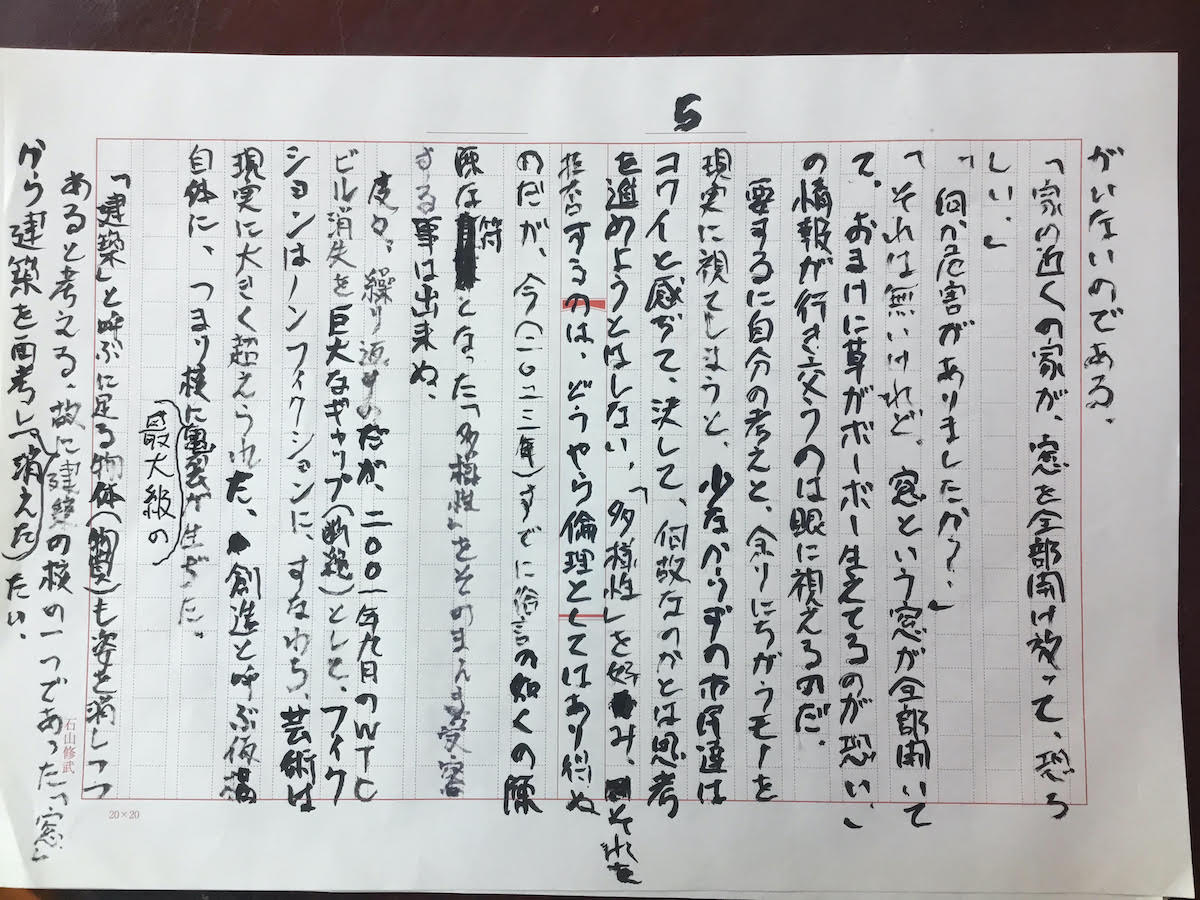 5
がいないのである、
「家の近くの家が、窓を全部開け放って、恐ろ
しい。」
「何か危害がありましたか?」
「それは無いけれど、窓という窓が全部開いて
て、おまけに草がボーボー生えてるのが恐い、」
の情報が行き交うのは眼に視えるのだ、
要するに自分の考えと、余りにちがうモノを
現実に視てしまうと、少なからずの市民達は
コワイと感じて、決して、何故なのかとは思考
を進めようとはしない、「多様性」を好み、それを
拒否するのは、どうやら倫理としてはあり得ぬ
のだが、今(二〇二三年)すでに俗言の如くの陳
腐な符となった「多様性」をそのまんま受容
する事は出来ぬ、
度々、繰り返すのだが、二〇〇一年九月のWTC
ビル消失を巨大なギャップ(断絶)として、フィク
ションはノンフィクションに、すなわち、芸術は
現実に大きく超えられた、創造と呼ぶ
自体に、つまり核に最大級の亀裂が生じた。
「建築」と呼ぶに足る物体(物質)も姿を消しつつ
あると考える、故に建築の核の一つであった「窓」
から建築を再考し(消えた)たい、
石山修武
20×20